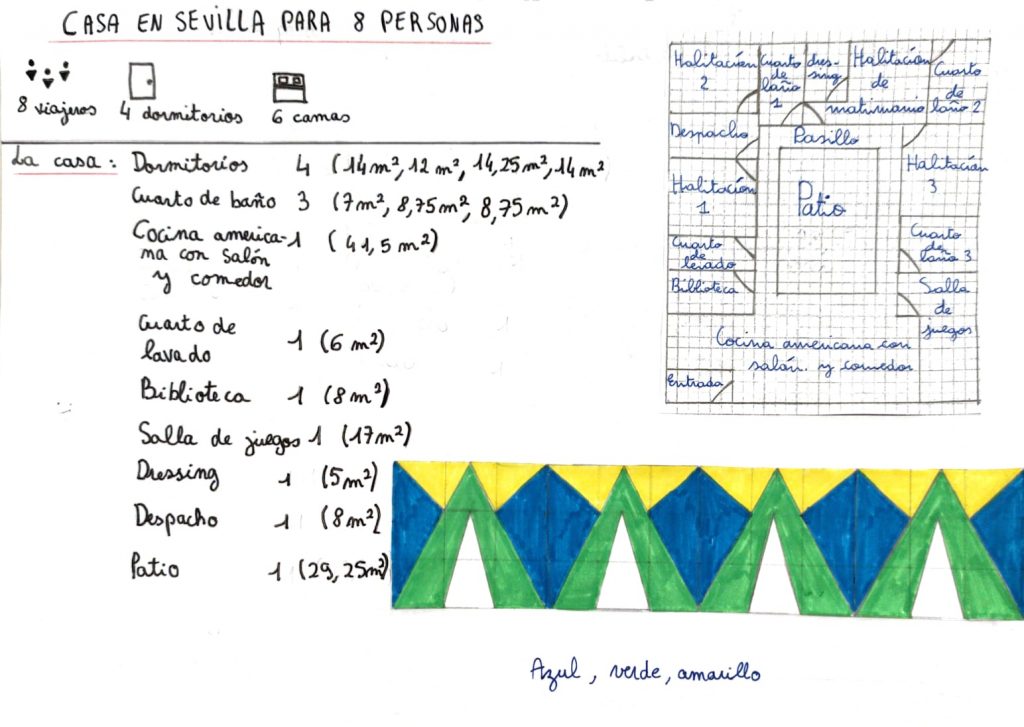 CASA EN SEVILLA PARA 8 PERSONAS
8 viajeros
4 dormitorios
6 camas
La casa : Dormitorios 4 (14 m², 12 m², 14,25 m², 14 m²
Cuarto de baño 3 (7 m², 8,75 m², 8,75 m²)
Cocina america- 1 (41,5 m²)
na con salón
y comedor
Cuarto de
lavado 1 (6 m²)
Biblioteca 1 (8 m²)
Salla de juegos 1 (17 m²)
Dressing 1 (5 m²)
Despacho 1 (8 m²)
Patio 1 (29,25 m²)
Habitación
2
Cuarto
de
baño
1
dres-
sing
Habitación
de
matrimonio
Cuarto
de
baño 2
Despacho
Pasillo
Habitación
1
Patio
Habitación
3
Cuarto
de
levado
Cuarto
de
baño 3
Biblioteca
Salla
de
juegos
Cocina americana con
salón. y comedor
Entrada
Azul, verde, amarillo